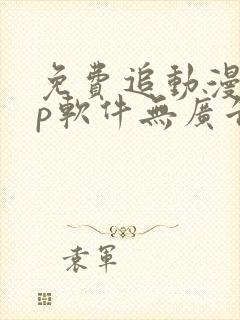 免費追動漫
p軟件無廣告
袁軍